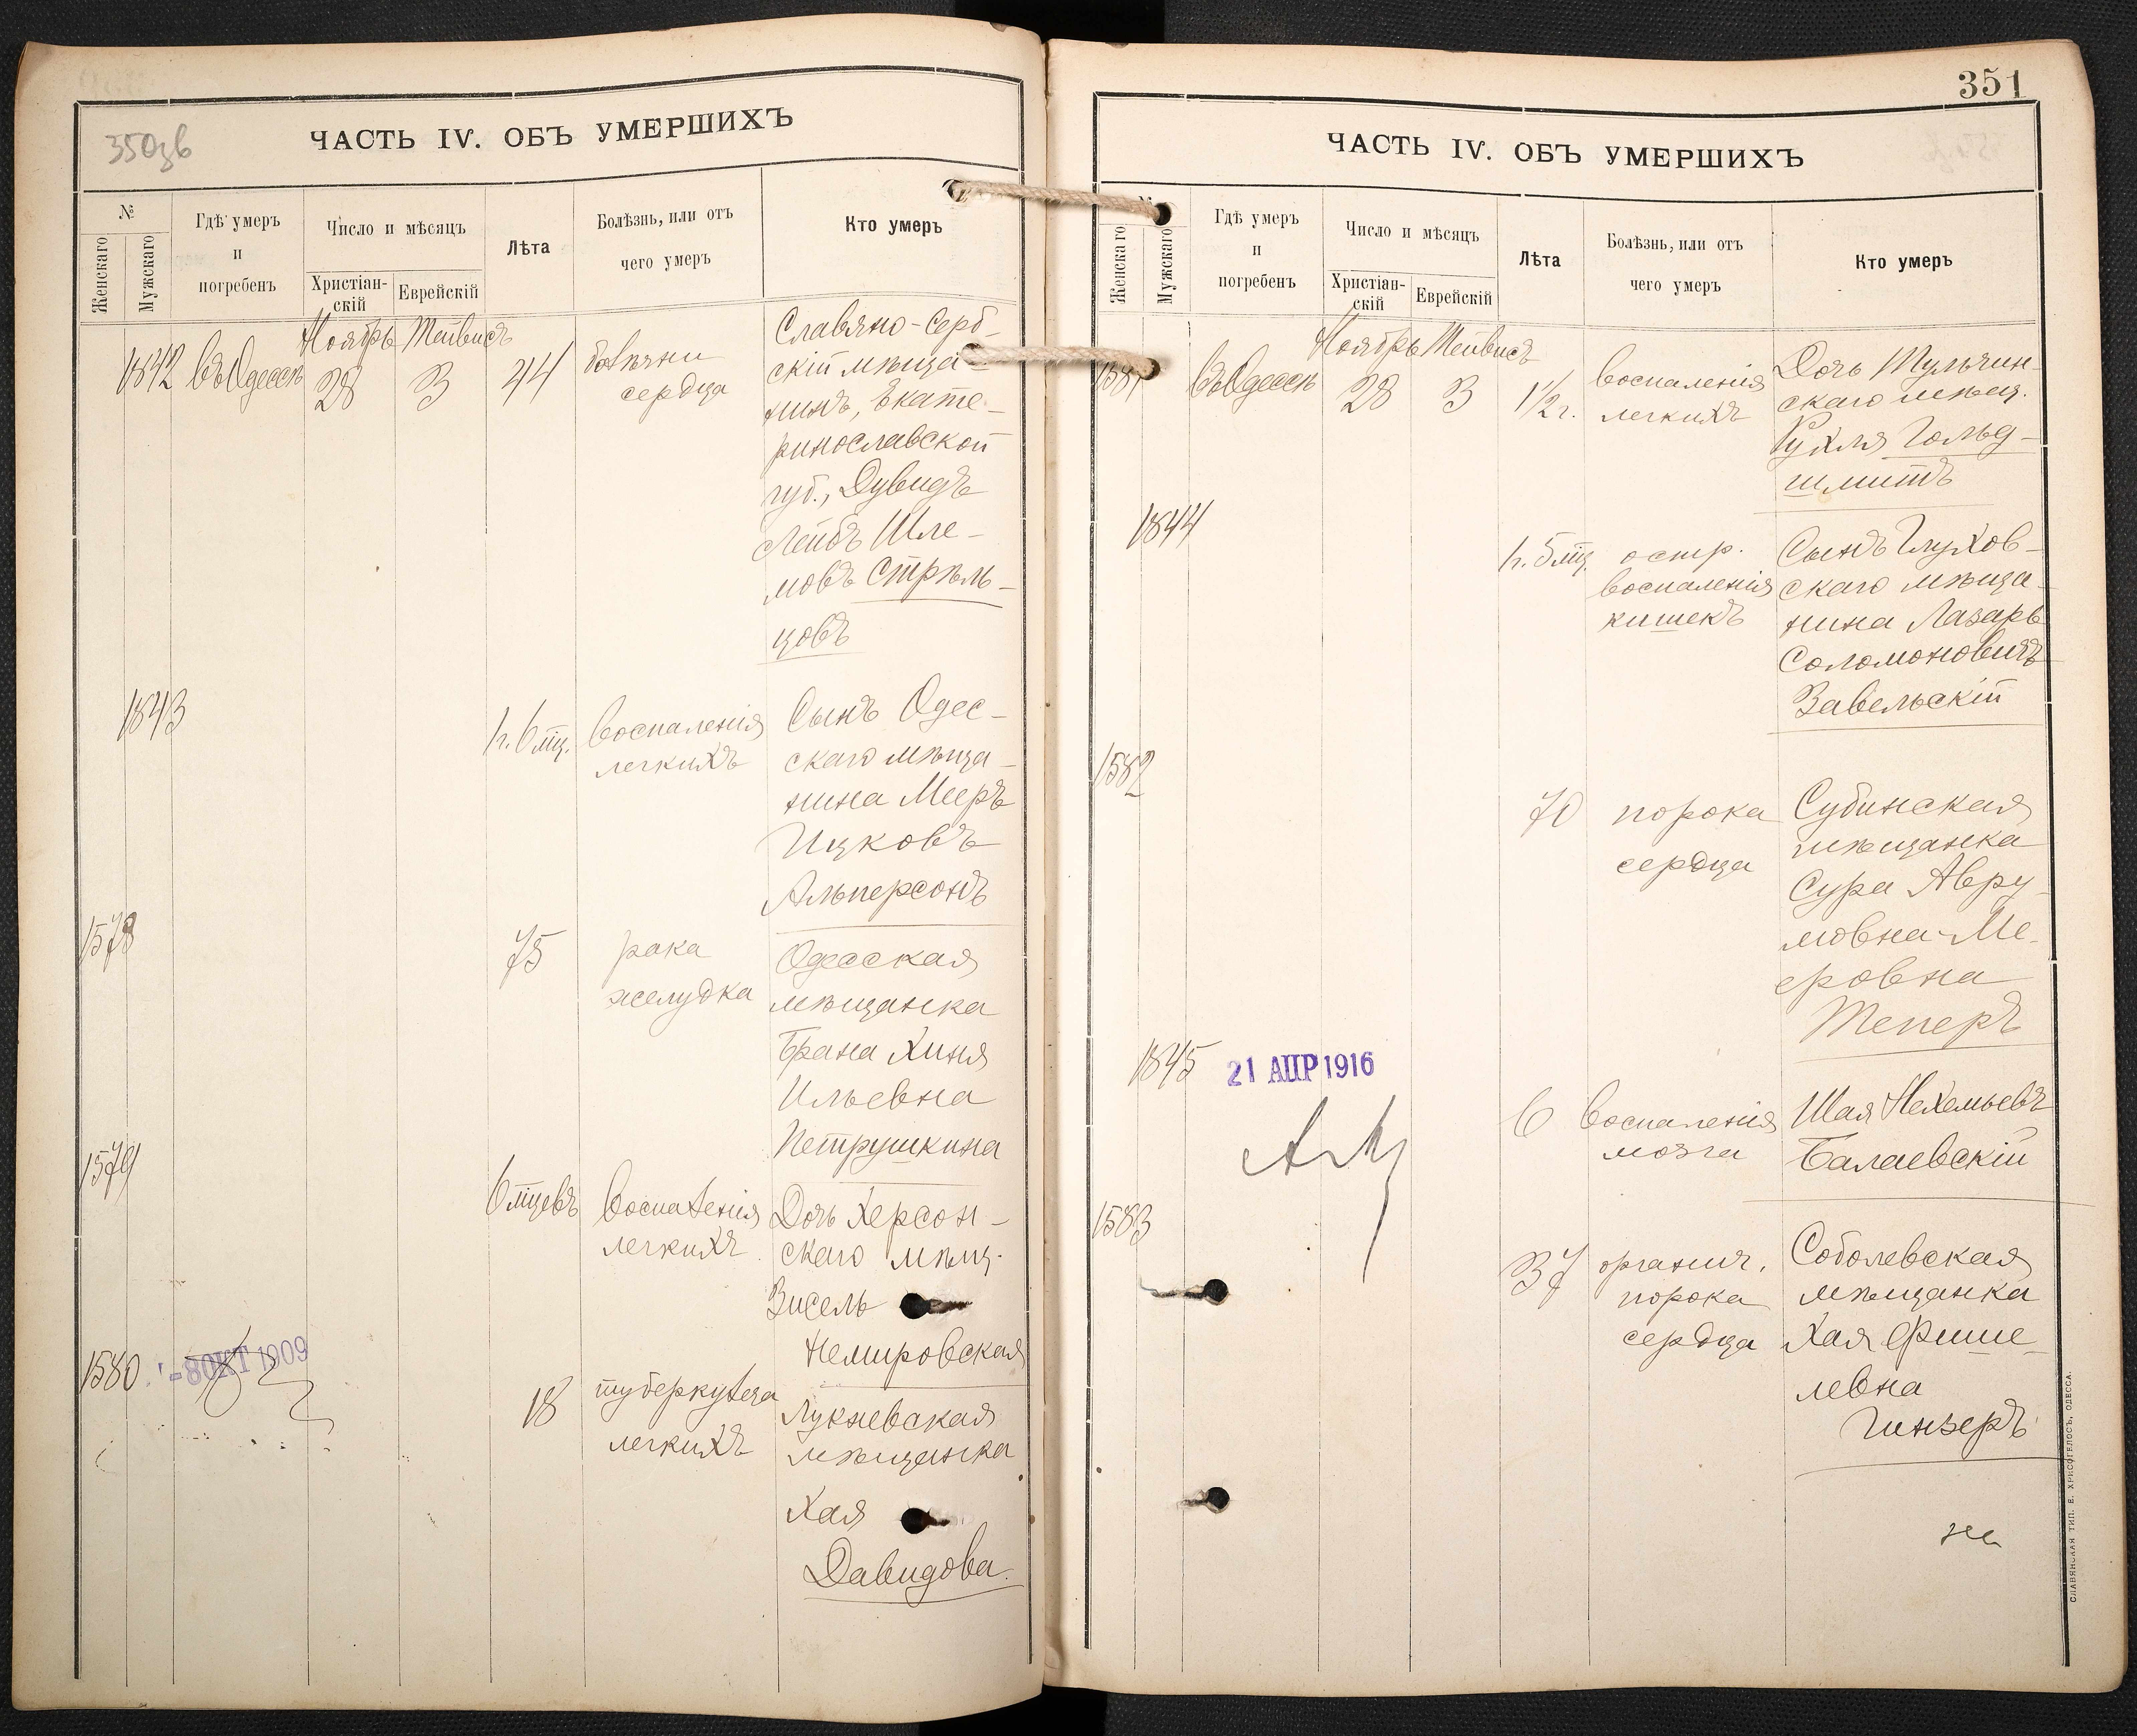 350зв
ЧАСТЬ IV. ОБЪ УМЕРШИХЪ
№
Женскаго
Мужскаго
Гдѣ умеръ
и
погребенъ
Число и мѣсяцъ
Христіан-
скій
Еврейскій
Лѣта
Болѣзнь, или отъ
чего умеръ
Кто умеръ
Ноябрь Тейвисъ
1842 въ Одессѣ 28 3 44 болѣзни
сердца
Славяно-серб-
скій мѣща-
нинъ, Екате-
ринославской
губ., Дувидъ
Лейбъ Шле-
мовъ Стрѣль-
цовъ
1843
1 г. 6 мц. воспаленія
легкихъ
Сынъ Одес-
скаго мѣща-
нина Мееръ
Ицковъ
Альперсонъ
1578
75 рака
желудка
Одесская
мѣщанка
Брана Хиня
Ильевна
Петрушкина
1579
6 мцевъ воспаленія
легкихъ
Дочь Херсон-
скаго мѣщ.
Зисель
Немировская
1580 -8 ОКТ 1909
18 туберкулеза
легкихъ
Лукневская
мѣщанка
Хая
Давидова.
351
ЧАСТЬ IV. ОБЪ УМЕРШИХЪ
№
Женскаго
Мужскаго
Гдѣ умеръ
и
погребенъ
Число и мѣсяцъ
Христіан-
скій
Еврейскій
Лѣта
Болѣзнь, или отъ
чего умеръ
Кто умеръ
Ноябрь Тейвисъ
1581 въ Одессѣ 28 3 1½ г. воспаленія
легкихъ
Дочь Тульчин-
скаго мѣщ.
Рухля Гольд-
шмитъ
1844
1 г. 5 мц. остр.
воспаленія
кишекъ
Сынъ Глухов-
скаго мѣща-
нина Лазарь
Соломоновичъ
Завельскій
1582
70 порока
сердца
Субинская
мѣщанка
Сура Авру-
мовна-Ме-
еровна
Теперъ
1845 21 АПР 1916
6 воспаленія
мозга
Шая Нехемьевъ
Балаевскій
1583
37 органич.
порока
сердца
Соболевская
мѣщанка
Хая Фише-
левна
Гинзеръ
на
СЛАВЯНСКАЯ ТИП. Е. ХРИСОГЕЛОСЪ, ОДЕССА.